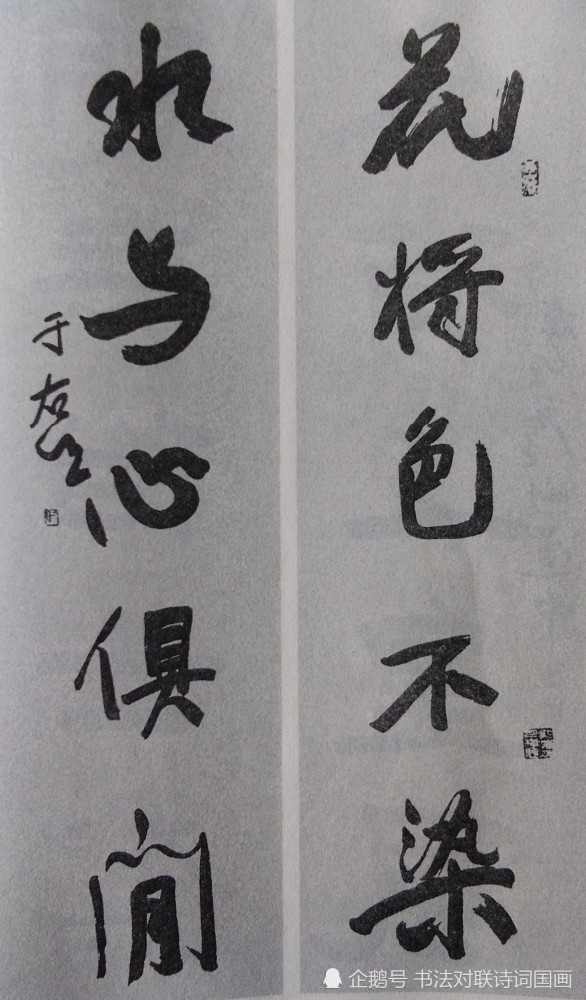 花将色不染
水与心俱閒
于右任
企鹅号 书法对联诗词国画